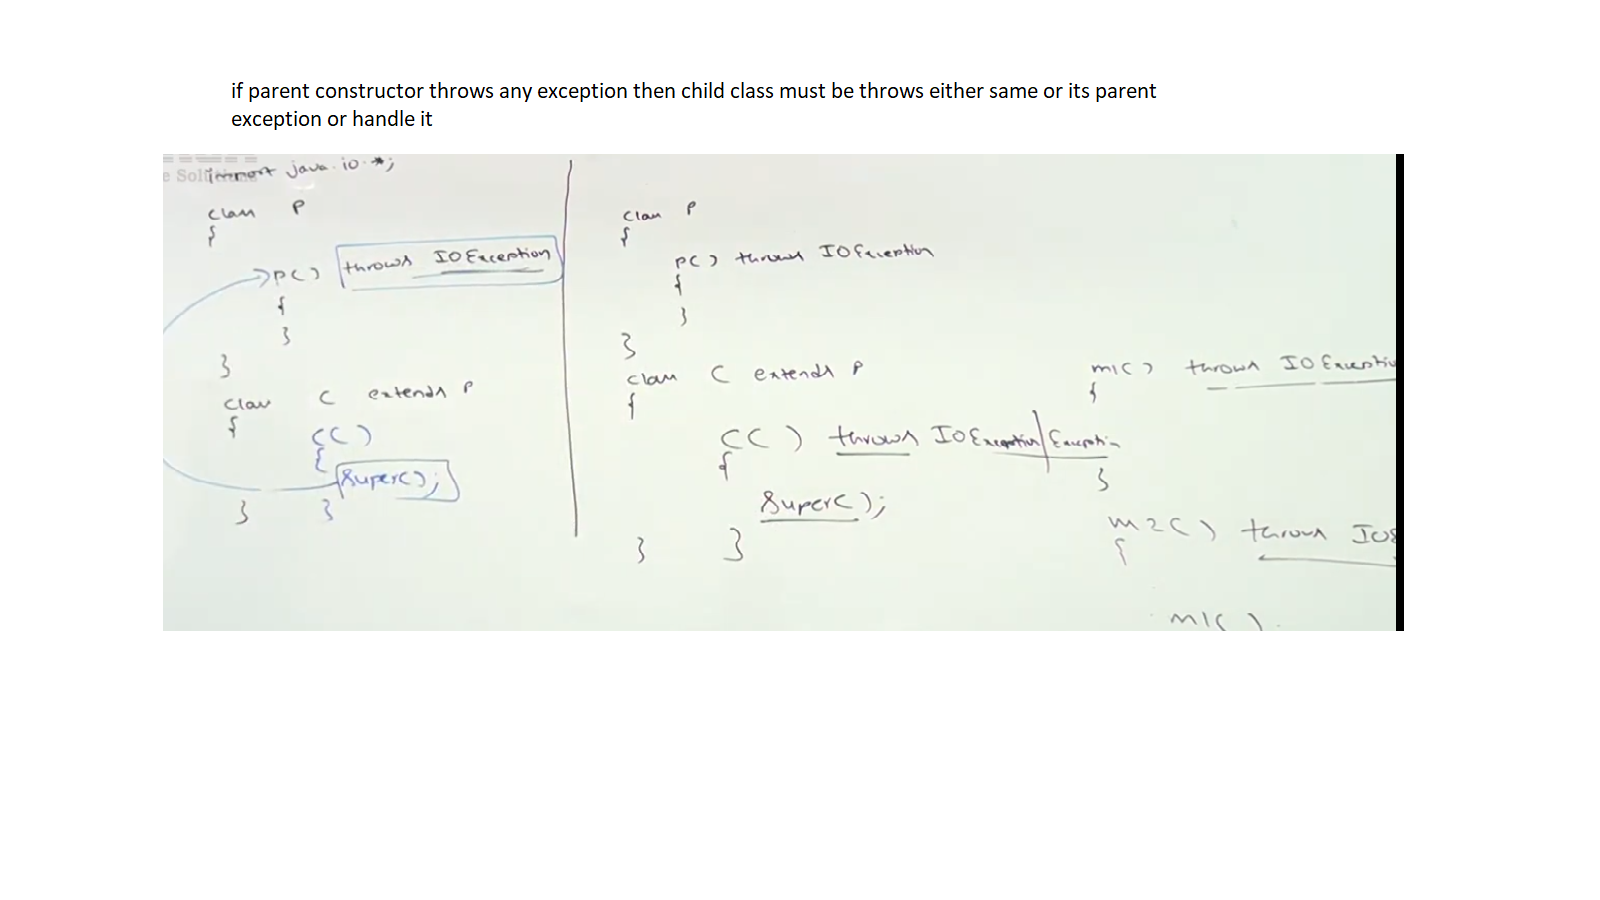 if parent constructor throws any exception then child class must be throws either same or its parent
exception or handle it
import java.io.*;
class P
{
P() throws IOException
{
}
}
class C extends P
{
C()
{
super();
}
}
class P
{
P() throws IOException
{
}
}
class C extends P
{
C() throws IOException/Exception
{
super();
}
}
m1() throws IOExceptio
{
}
m2() throws IOE
{
m1()